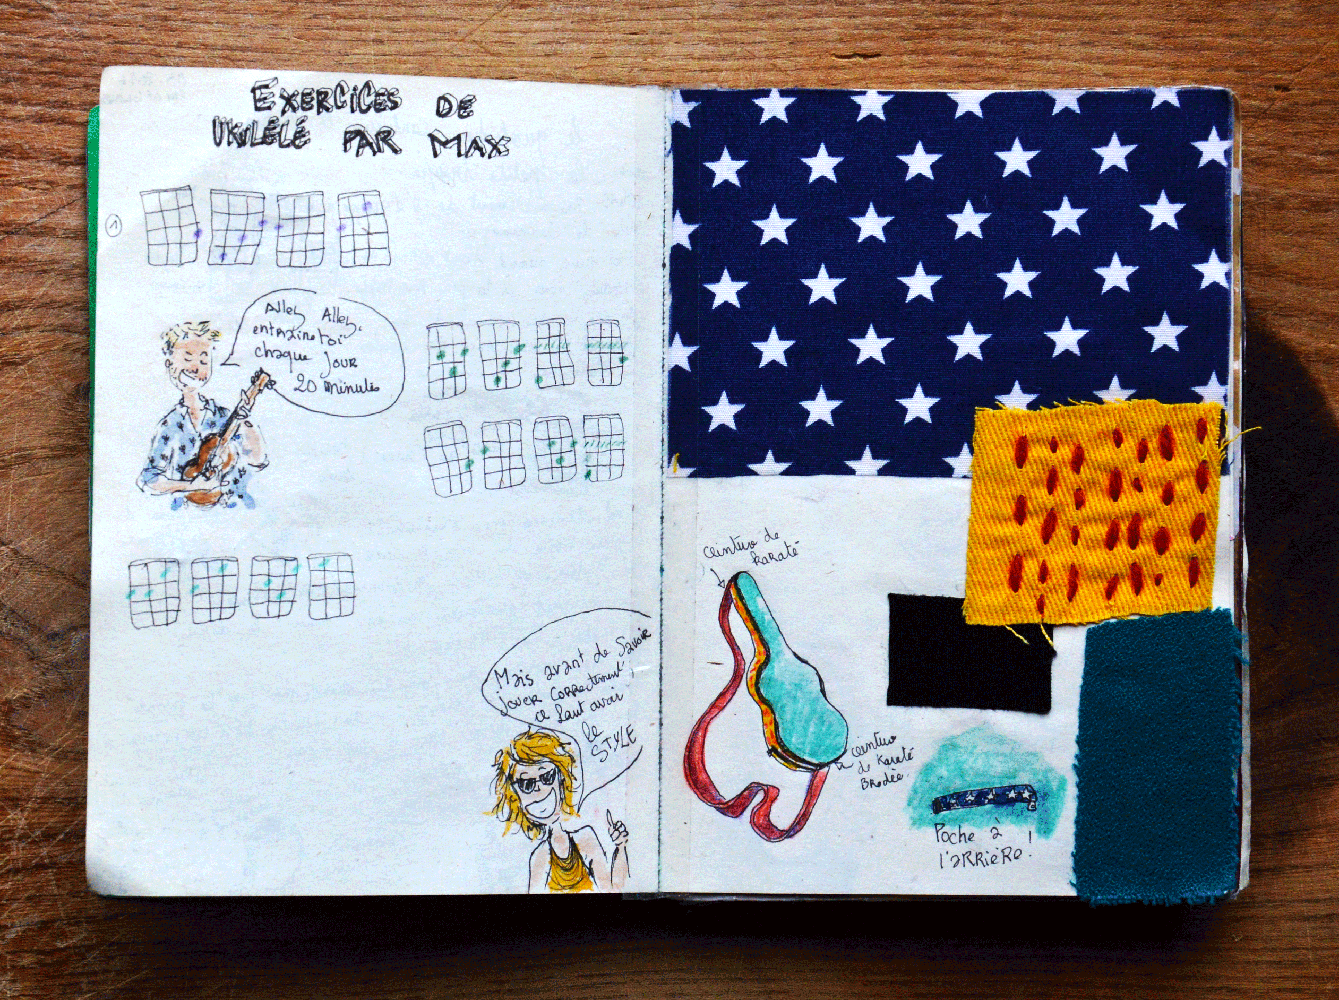 EXERCICES DE
UKULÉLÉ PAR MAX
1
Allez Allez
entraine toi
chaque jour
20 minutes
Mais avant de savoir
jouer correctement,
il faut avoir
le
STYLE
ceinture de
karaté
ceinture
de karaté
Brodée
Poche à
l'arrière!